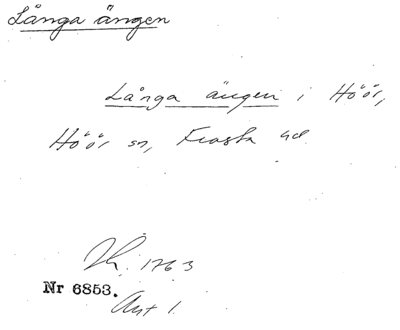 Långa ängen
Långa ängen i Höör,
Höör sn, Frosta hd
1763
Nr 6853.
Akt 1.